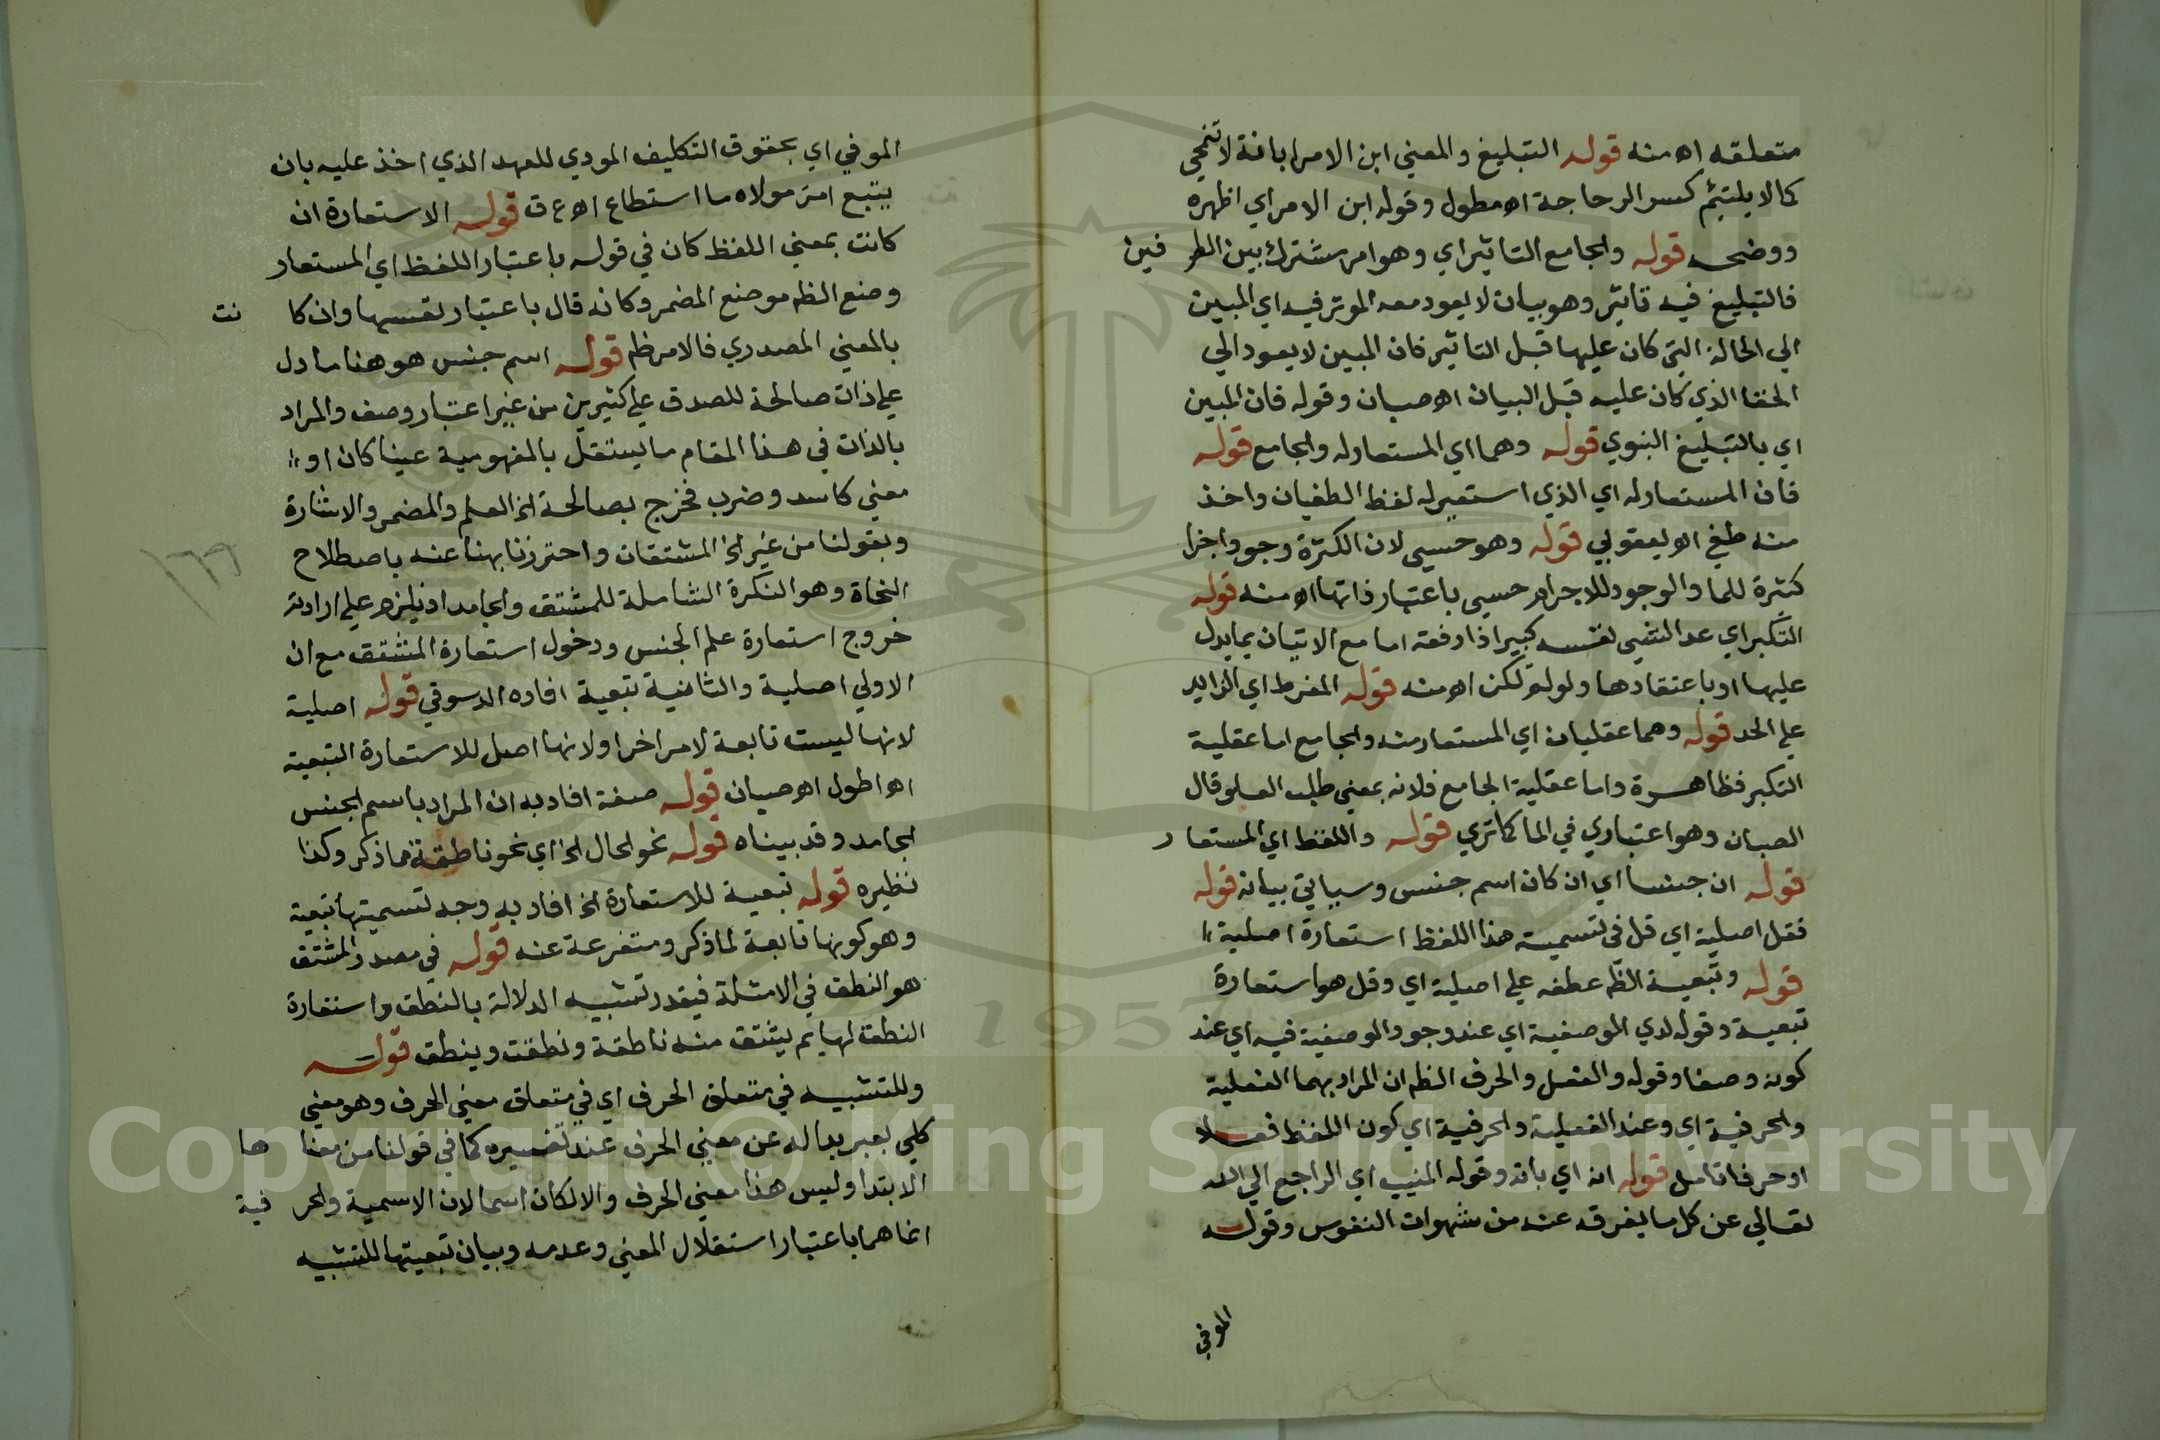 متعلقه اه منه قوله التبليغ والمعني ابن الامر ابانة لا تنمحي
كما لا يلتئم كسر الزجاجة اه مطول وقوله ابن الامر اي اظهره
ووضحه قوله والجامع التاثير اي وهو امر مشترك بين الطرفين
فالتبليغ فيه تاثير وهو بيان لا يعود معه الموثر فيه اي المبين
الي الحالة التي كان عليها قبل التاثير فان المبين لا يعود الي
الخفا الذي كان عليه قبل البيان اه صبان وقوله فان المبين
اي بالتبليغ النبوي قوله وهما اي المستعار له والجامع قوله
فان المستعار له اي الذي استعير له لفظ الطغيان واخذ
منه طغي اه يعقوبي قوله وهو حسي لان الكثرة وجود اجزا
كثيرة للما والوجود للاجرام حسي باعتبار ذاتها اه منه قوله
التكبر اي عد الشي نفسه كبيرا ذا رفعة اما مع الاتيان بما يدل
عليها او باعتقادها ولو لم تكن اه منه قوله المفرط اي الزايد
علي الحد قوله وهما عقليان اي المستعار منه والجامع اما عقلية
التكبر فظاهرة واما عقلية الجامع فلانه بمعني طلب العلو قال
الصبان وهو اعتباري في الما كما تري قوله واللفظ اي المستعار
قوله ان جنسا اي ان كان اسم جنس وسياتي بيانه قوله
فقل اصلية اي قل في تسمية هذا اللفظ استعارة اصلية
قوله وتبعية الظ عطفه علي اصلية اي وقل هو استعارة
تبعية وقوله لدي الوصفية اي عند وجود الوصفية فيه اي عند
كونه وصفا وقوله والفعل والحرف الظم ان المراد بهما الفعلية
والحرفية اي وعند الفعلية والحرفية اي كون اللفظ فعلا
او حرفا تامل قوله انه اي بانه وقوله المنيب اي الراجع الي الله
تعالي عن كل ما يفرقه عنه من شهوات النفوس وقوله
الموفي
الموفي اي بحقوق التكليف المودي للعهد الذي اخذ عليه بان
يتبع امر مولاه ما استطاع اه ع ت قوله الاستعارة ان
كانت بمعني اللفظ كان في قوله باعتبار اللفظ اي المستعار
وضع الظم موضع المضمر وكانه قال باعتبار نفسها وان كانت
بالمعني المصدري فالامر ظم قوله اسم جنس هو هنا ما دل
علي ذات صالحة للصدق علي كثيرين من غير اعتبار وصف والمراد
بالذات في هذا المقام ما يستقل بالمفهومية عينا كان او
معني كاسد وضرب فخرج بصالحة الخ العلم والمضمر والاشارة
وبقولنا من غير الخ المشتقات واحترزنا بهنا عنه باصطلاح
النحاة وهو النكرة الشاملة للمشتق والجامد اذ يلزم علي ارادته
خروج استعارة علم الجنس ودخول استعارة المشتق مع ان
الاولي اصلية والثانية تبعية افاده الدسوقي قوله اصلية
لانها ليست تابعة لامر اخر او لانها اصل للاستعارة التبعية
اه اطول اه صبان قوله صفة افاد به ان المراد باسم الجنس
الجامد وقد بيناه قوله نحو الحال الخ اي نحو ناطقة مما ذكر وكذا
نظيره قوله تبعية للاستعارة الخ افاد به وجه تسميتها تبعية
وهو كونها تابعة لما ذكر ومتفرعة عنه قوله في مصدر المشتق
هو النطق في الامثلة فيقدر تشبيه الدلالة بالنطق واستعارة
النطق لها ثم يشتق منه ناطقة ونطقت وينطق قوله
وللتشبيه في متعلق الحرف اي في متعلق معني الحرف وهو معني
كلي يعبر به له عن معني الحرف عند تفسيره كما في قولنا من معناها
الابتدا وليس هذا معني الحرف والا لكان اسما لان الاسمية والحرفية
انما هما باعتبار استقلال المعني وعدمه وبيان تبعيتها للتشبيه
١٦٦
1957
Copyright © King Saud University